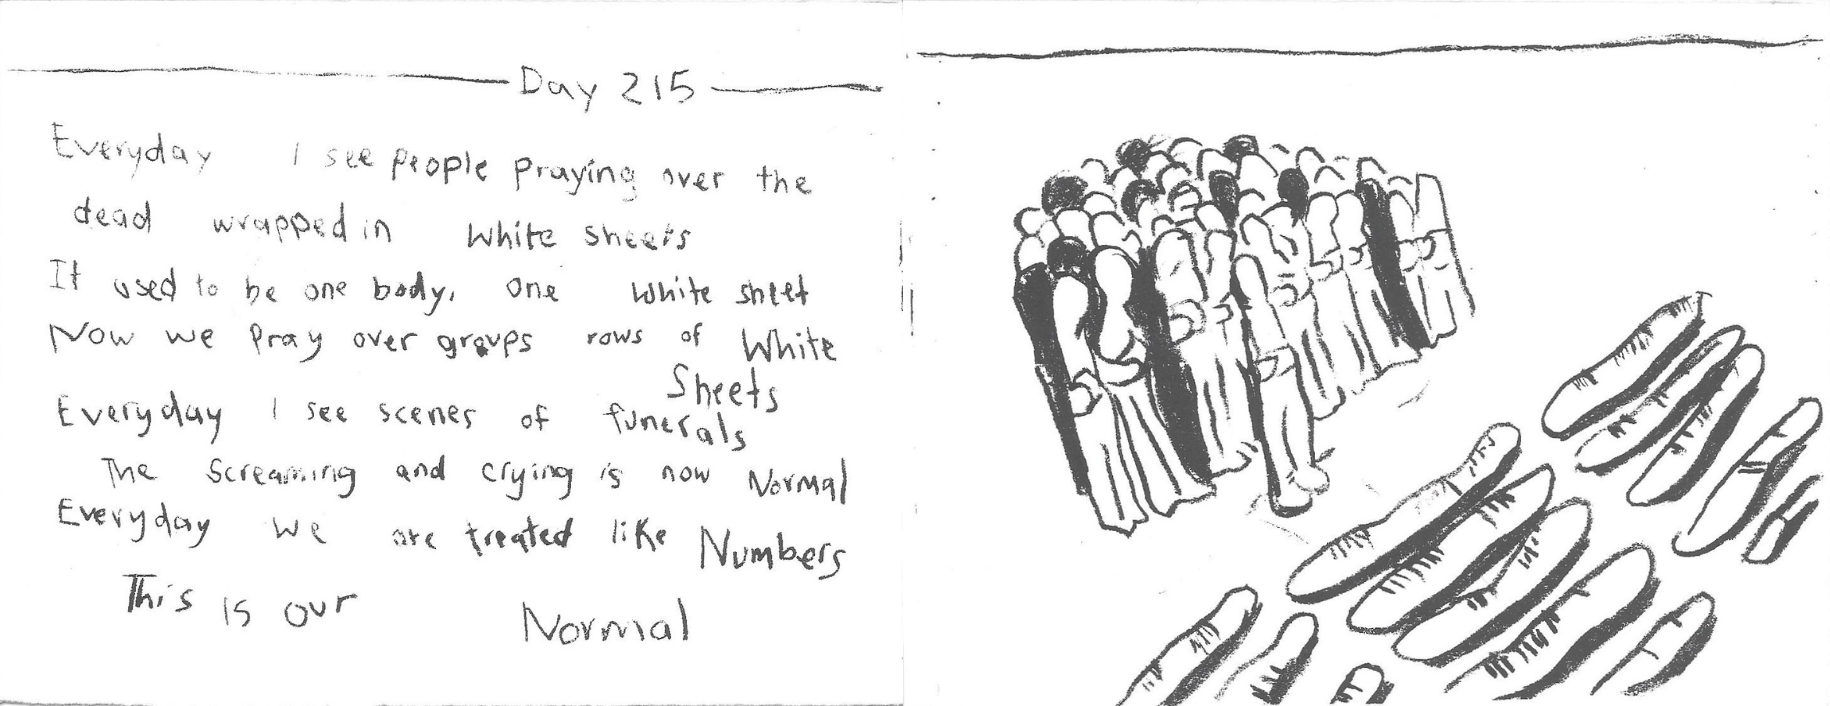 Day 215
Everyday I see people praying over the
dead wrapped in white sheets
It used to be one body, one white sheet
Now we pray over groups rows of White
Sheets
Everyday I see scenes of funerals
The screaming and crying is now Normal
Everyday we are treated like Numbers
This is our Normal